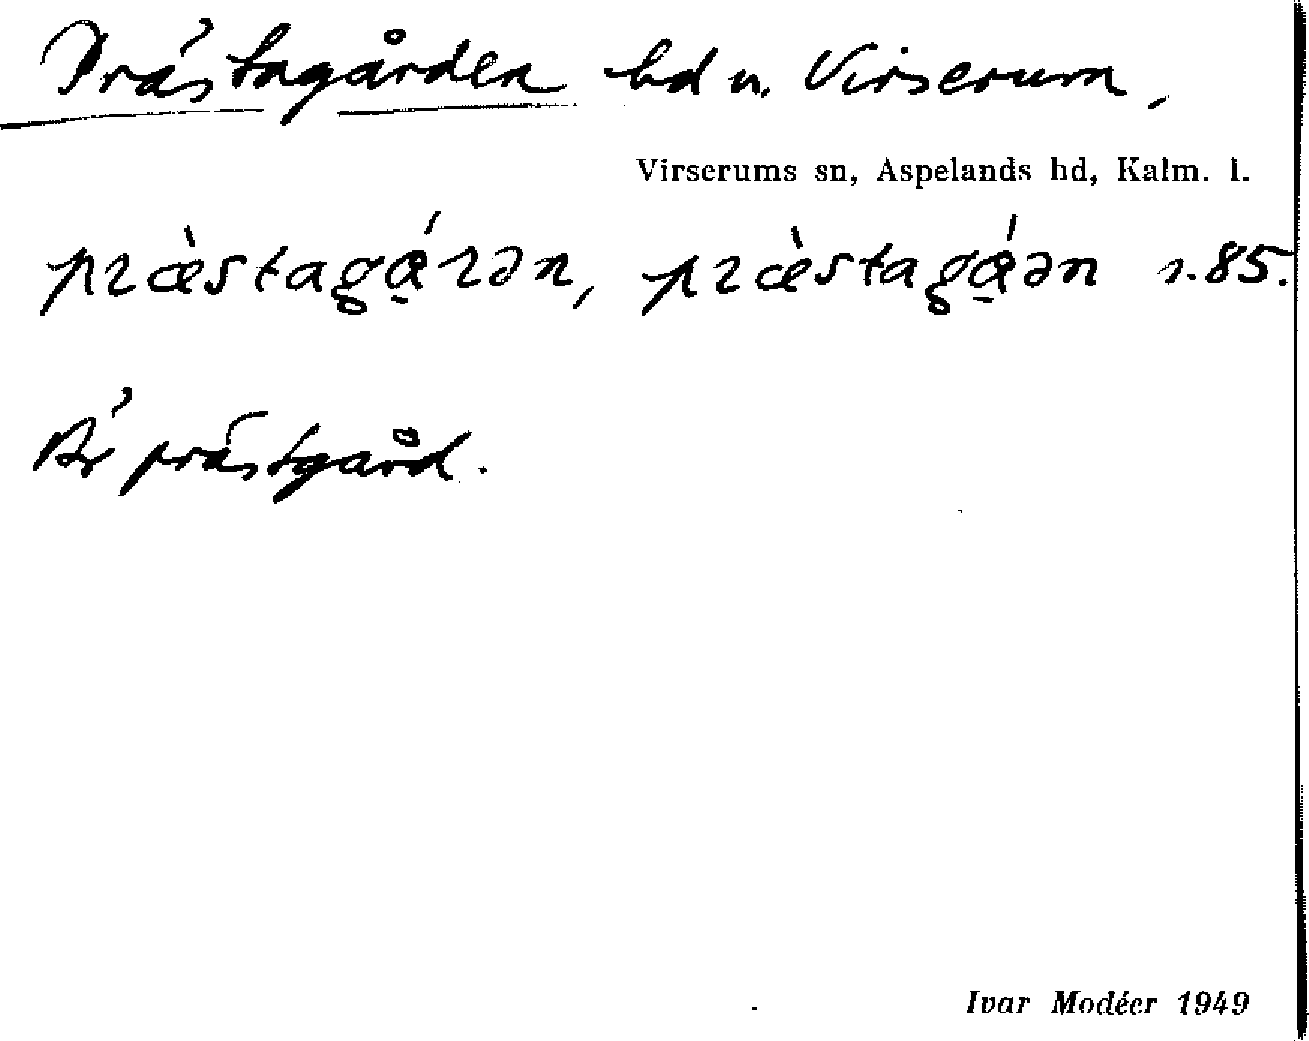 Prästagården bd u. Virserum,
Virserums sn, Aspelands hd, Kalm. l.
præ̀stagá̱rən, præ̀stagá̱ən s. 85.
Är prästgård.
Ivar Modéer 1949